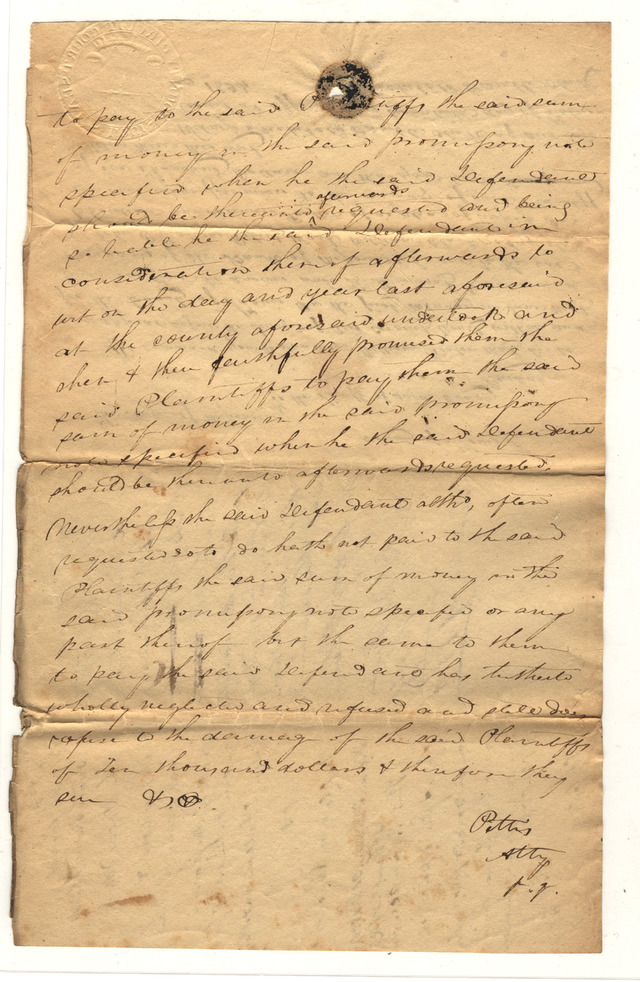 to pay to the said Plaintiffs the said sum
of money in the said promissory note
specified when he the said Defendant
afterwards
should be thereunto requested and being
so liable he the said Defendant in
consideration thereof afterwards to
wit on the day and year last aforesaid
at the county aforesaid undertook and
then & there faithfully promised them the
said Plaintiffs to pay them the said
sum of money in the said promissory
note specified when he the said Defendant
should be thereunto afterwards requested.
Nevertheless the said Defendant altho, often
requested so to do hath not paid to the said
Plaintiffs the said sum of money in the
said promissory note specified or any
part thereof but the same to them
to pay the said Defendant has hitherto
wholly neglected and refused and still does
refuse to the damage of the said Plaintiffs
of Ten thousand dollars & therefore they
sue &c.
Pettis
Atty
p. q.